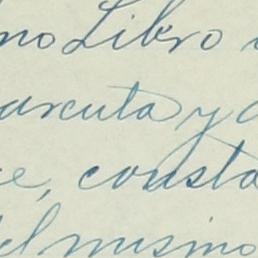 no Libro
arcuta y a
e, consta
del mismo